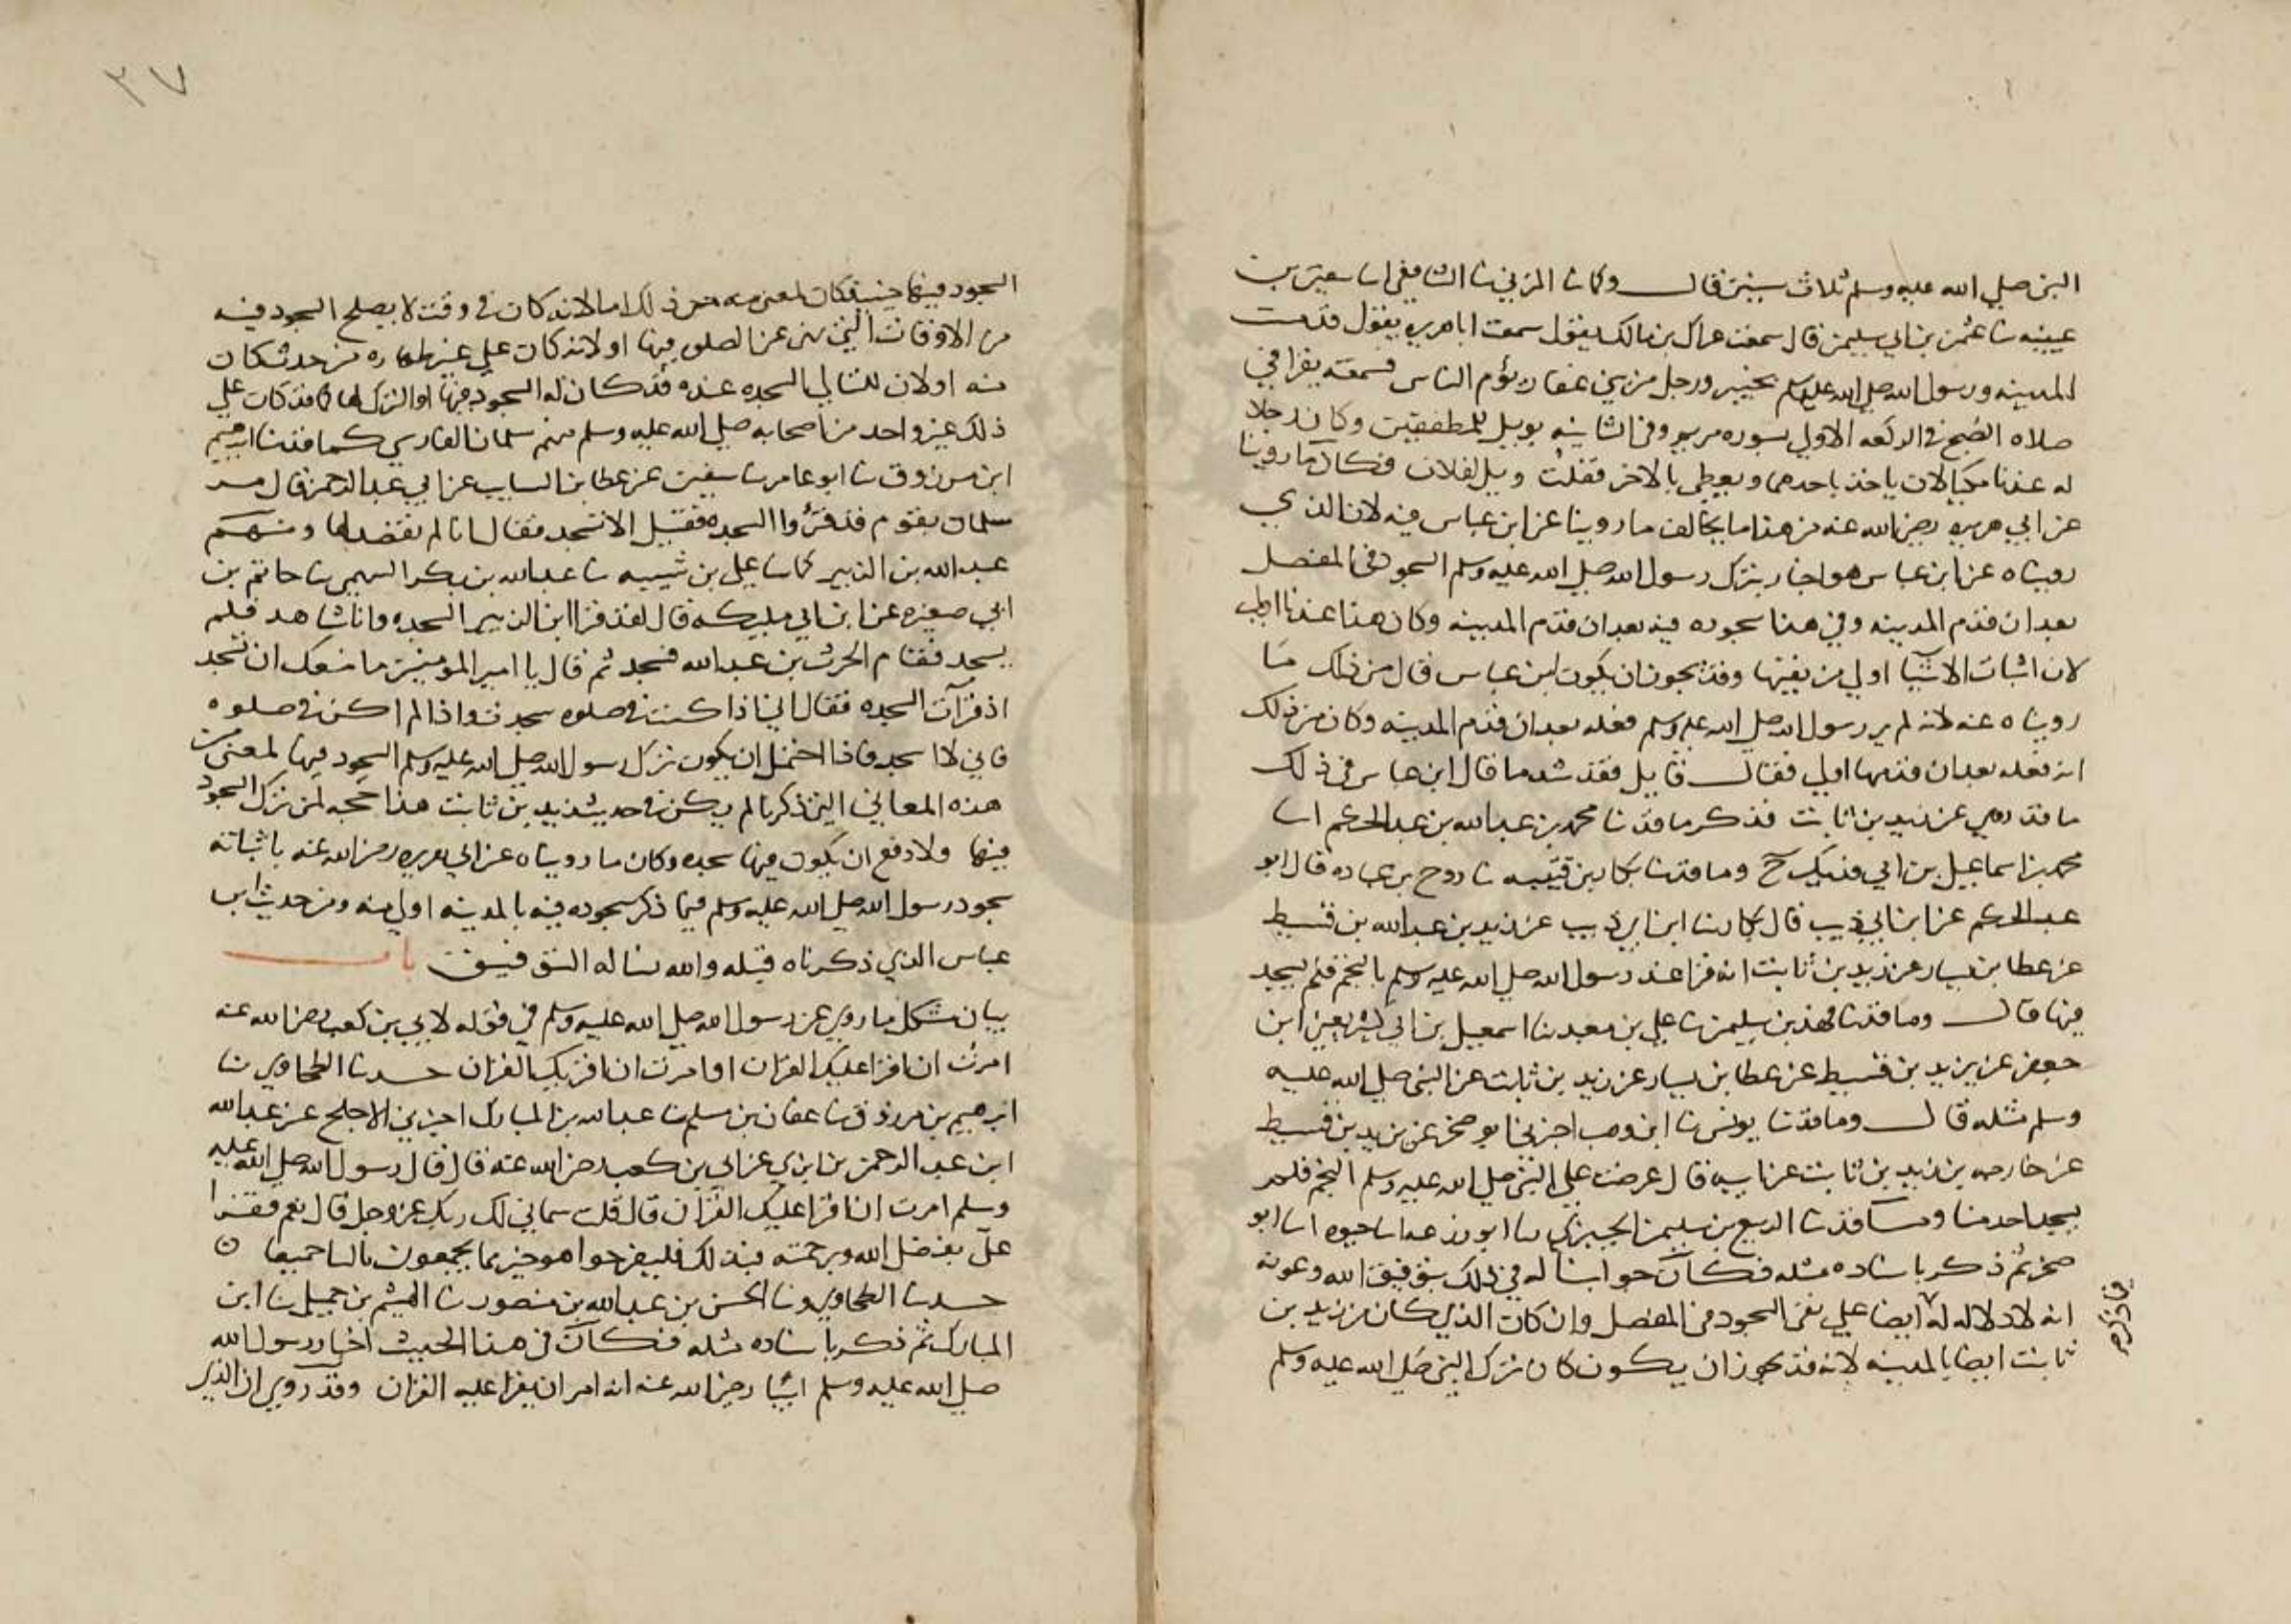 النبي صلي الله عليه وسلم ثلاث سنين قال وكما نا المزني نا الشافعي انا سفين بن
عيينه نا عثمن بن ابي سليمن قال سمعت عراك بن مالك يقول سمعت ابا هريره يقول قدمت
المدينه ورسول الله صلي الله عليه وسلم بخيبر ورجل من بني غفار يؤم الناس فسمعته يقرا في
صلاه الصبح في الركعه الاولي بسوره مريم وفي الثانيه بويل للمطففين وكان رجلا
له عندنا مكيالان ياخذ باحدهما ويعطي بالاخر فقلت ويل لفلان فكان ما روينا
عن ابي هريره رضي الله عنه من هذا ما يخالف ما روينا عن ابن عباس فيه لان الذي
رويناه عن ابن عباس هو اخبار بترك رسول الله صلي الله عليه وسلم السجود في المفصل
بعد ان قدم المدينه وفي هذا سجوده فيه بعد ان قدم المدينه وكان هذا عندنا اولي
لان اثبات الاشيا اولي من نفيها وقد يجوز ان يكون ابن عباس قال من ذلك ما
رويناه عنه لانه لم ير رسول الله صلي الله عليه وسلم فعله بعد ان قدم المدينه وكان من ذلك
انه فعله بعد ان قدمها اولي فقال قايل فقد شد ما قال ابن عباس في ذلك
ما قد روي عن زيد بن ثابت فذكر ما قد نا محمد بن عبد الله بن عبد الحكم انا
محمد بن اسماعيل بن ابي فديك ح وما قد نا بكار بن قتيبه نا روح بن عباده قال ابو
عبد الحكم عن ابن ابي ذيب قال بكار نا ابن ابي ذيب عن يزيد بن عبد الله بن قسيط
عن عطا بن يسار عن زيد بن ثابت انه قرا عند رسول الله صلي الله عليه وسلم بالنجم فلم يسجد
فيها قال وما قد نا فهد بن سليمن نا علي بن معبد نا اسمعيل بن ابي كثير يعني ابن
جعفر عن يزيد بن قسيط عن عطا بن يسار عن زيد بن ثابت عن النبي صلي الله عليه
وسلم مثله قال وما قد نا يونس نا ابن وهب اخبرني ابو صخر عن يزيد بن قسيط
عن خارجه بن زيد بن ثابت عن ابيه قال عرضت علي النبي صلي الله عليه وسلم النجم فلم
يسجد احد منا وما قد نا الربيع بن سليمن الجيزي نا ابو زرعه انا حيوه انا ابو
صخر ثم ذكر باسناده مثله فكان جوابنا له في ذلك بتوفيق الله وعونه
انه لا دلاله له ايضا علي نفي السجود في المفصل وان كان الذي كان من زيد بن
فيما ذكره
ثابت ايضا بالمدينه لانه قد يجوز ان يكون كان ترك النبي صلي الله عليه وسلم
٣٧
السجود فيها حينئذ كان لمعني منعه من ذلك اما لانه كان في وقت لا يصلح السجود فيه
من الاوقات التي نهي عن الصلوه فيها او لانه كان علي غير طهاره من حدث كان
منه او لان للتالي السجده عنده قد كان له السجود فيها او الترك لها كما قد كان علي
ذلك غير واحد من اصحابه صلي الله عليه وسلم منهم سلمان الفارسي كما قد نا ابرهيم
ابن مرزوق نا ابو عامر نا سفين عن عطا بن السايب عن ابي عبد الرحمن قال مر
سلمان بقوم قد قرؤا السجده فقيل الا تسجد فقال انا لم نقصد لها ومنهم
عبد الله بن الزبير كما نا علي بن شيبه نا عبد الله بن بكر السهمي نا حاتم بن
ابي صغيره عن ابن ابي مليكه قال لقد قرا ابن الزبير السجده وانا شاهد فلم
يسجد فقام الحرث بن عبد الله فسجد ثم قال يا امير المومنين ما منعك ان تسجد
اذ قرات السجده فقال اني اذا كنت في صلوه سجدت واذا لم اكن في صلوه
فاني لا اسجد فاذا احتمل ان يكون ترك رسول الله صلي الله عليه وسلم السجود فيها لمعني من
هذه المعاني التي ذكرنا لم يكن في حديث زيد بن ثابت هذا حجه لمن ترك السجود
فيها ولا دفع ان يكون فيها سجده وكان ما رويناه عن ابي هريره رضي الله عنه باثباته
سجود رسول الله صلي الله عليه وسلم فيما ذكر سجوده فيه بالمدينه اولي منه ومن حديث ابن
عباس الذي ذكرناه قبله والله نساله التوفيق باب
بيان مشكل ما روي عن رسول الله صلي الله عليه وسلم في قوله لابي بن كعب رضي الله عنه
امرت ان اقرا عليك القران او امرت ان اقريك القران حدثنا الطحاوي نا
ابرهيم بن مرزوق نا عفان بن مسلم نا عبد الله بن المبارك اخبرني الاجلح عن عبد الله
ابن عبد الرحمن بن ابزي عن ابي بن كعب رضي الله عنه قال قال رسول الله صلي الله عليه
وسلم امرت ان اقرا عليك القران قال قلت سماني لك ربك عز وجل قال نعم فقرا
علي بفضل الله وبرحمته فبذلك فليفرحوا هو خير مما يجمعون بالتا جميعا ن
حدثنا الطحاوي ونا الحسن بن عبد الله بن منصور نا الهيثم بن جميل نا ابن
المبارك ثم ذكر باسناده مثله فكان في هذا الحديث اخبار رسول الله
صلي الله عليه وسلم ابيا رضي الله عنه انه امر ان يقرا عليه القران وقد روي ان الذي